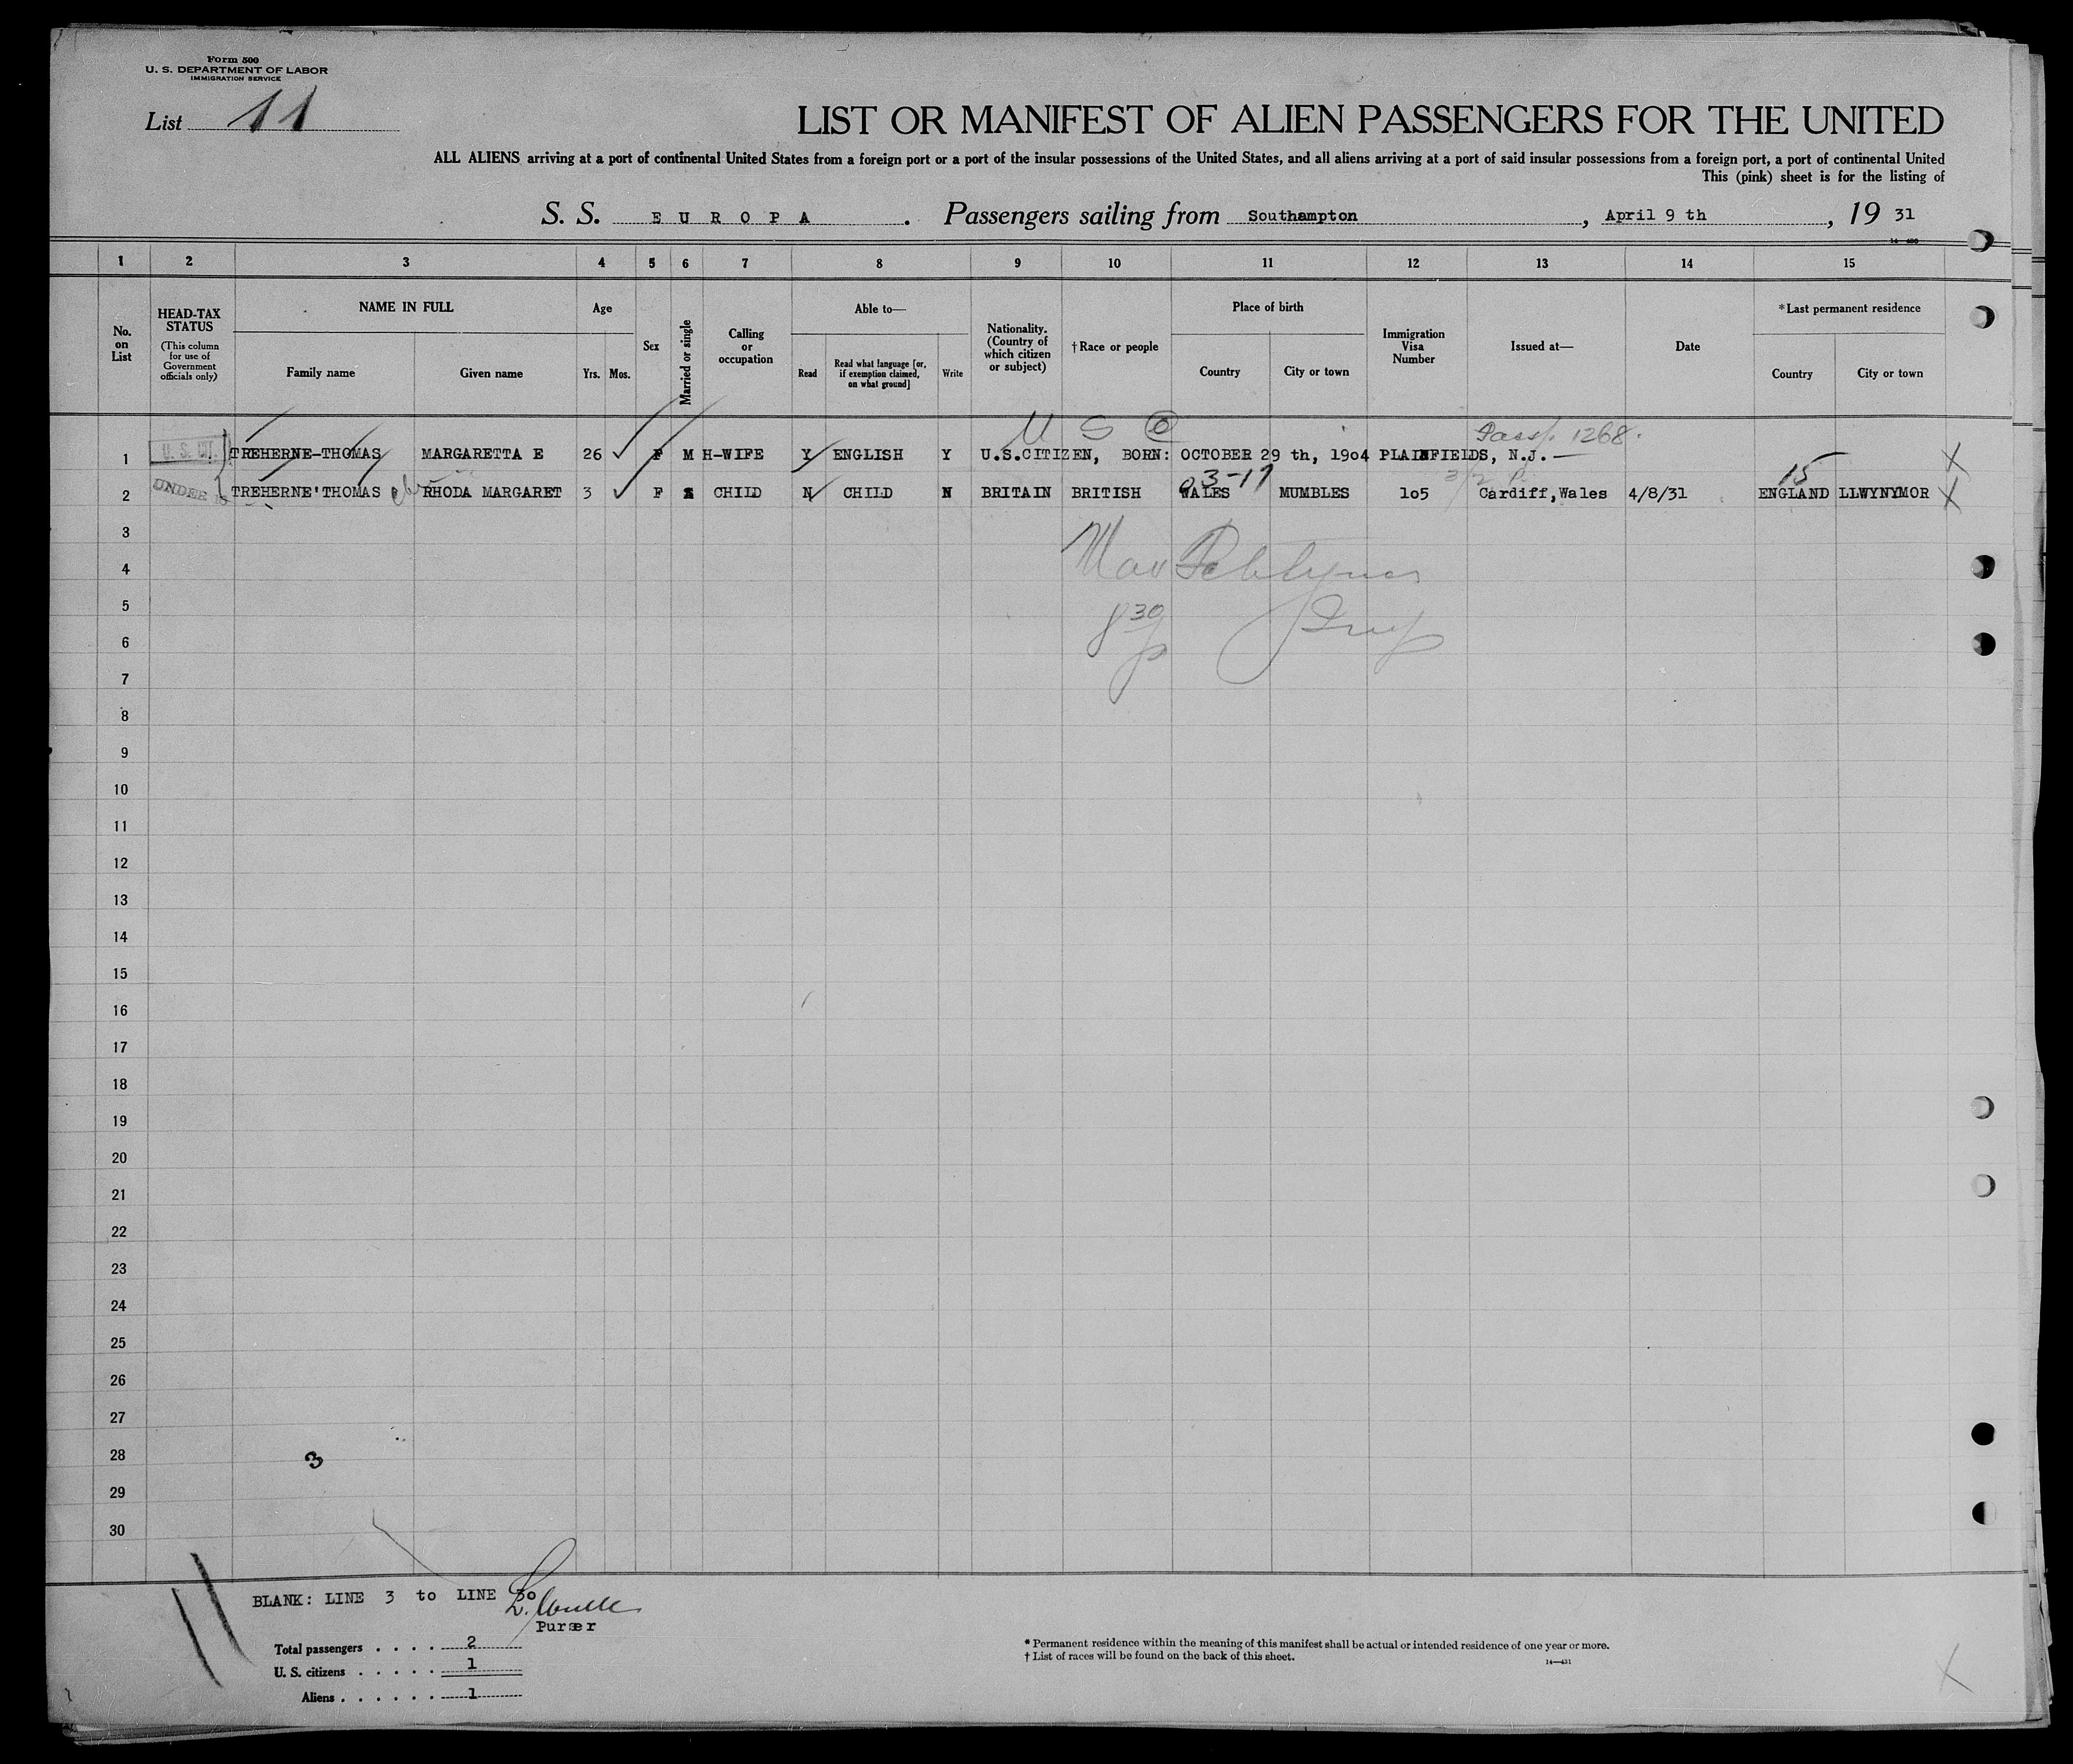 Form 500
U. S. DEPARTMENT OF LABOR
IMMIGRATION SERVICE
List 11
LIST OR MANIFEST OF ALIEN PASSENGERS FOR THE UNITED
ALL ALIENS arriving at a port of continental United States from a foreign port or a port of the insular possessions of the United States, and all aliens arriving at a port of said insular possessions from a foreign port, a port of continental United
This (pink) sheet is for the listing of
S. S. EUROPA. Passengers sailing from Southampton, April 9 th, 19 31
14—430
1 2 3 4 5 6 7 8 9 10 11 12 13 14 15
No. on List
HEAD-TAX STATUS (This column for use of Government officials only)
NAME IN FULL
Family name Given name
Age
Yrs. Mos.
Sex
Married or single
Calling or occupation
Able to—
Read
Read what language [or, if exemption claimed, on what ground]
Write
Nationality. (Country of which citizen or subject)
† Race or people
Place of birth
Country City or town
Immigration Visa Number
Issued at—
Date
* Last permanent residence
Country City or town
U S C Pass. 1268.
1 U. S. CIT. TREHERNE-THOMAS MARGARETTA E 26 F M H-WIFE Y ENGLISH Y U.S.CITIZEN, BORN: OCTOBER 29 th, 1904 PLAINFIELDS, N.J.—
3-17 15
2 UNDER TREHERNE'THOMAS RHODA MARGARET 3 F S CHILD N CHILD N BRITAIN BRITISH WALES MUMBLES 1o5 Cardiff,Wales 4/8/31 ENGLAND LLWYNYMOR
3
4
5
8 30
6
7
8
9
10
11
12
13
14
15
16
17
18
19
20
21
22
23
24
25
26
27
28 3
29
30
BLANK: LINE 3 to LINE 30
Purser
Total passengers . . . . 2
U. S. citizens . . . . . 1
Aliens . . . . . . 1
* Permanent residence within the meaning of this manifest shall be actual or intended residence of one year or more.
† List of races will be found on the back of this sheet.
14—431